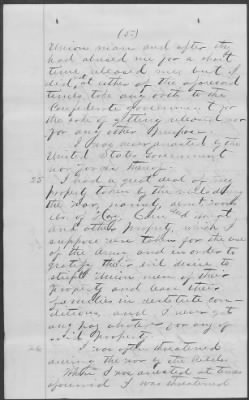 (5)
Union man and after they
had abused me for a short
time released me, but I
did, at either of the aforesaid
times, take any oath to the
Confederate government for
the sake of getting released nor
for any other purpose.
I was never arrested by the
United States Government
nor
25 I had a great deal of my
property taken by the rebels during
the War, namely, about
of Hay, Corn
and other property, which I
suppose was taken for the use
of the Army, and in order to
gratify their evil desire to
strip Union men of their
property and leave their
families in destitute con-
ditions, and I never got
any pay whatever for any of
said property.
26 I was often threatened
during the war by the Rebels
When I was arrested at times
aforesaid I was threatened